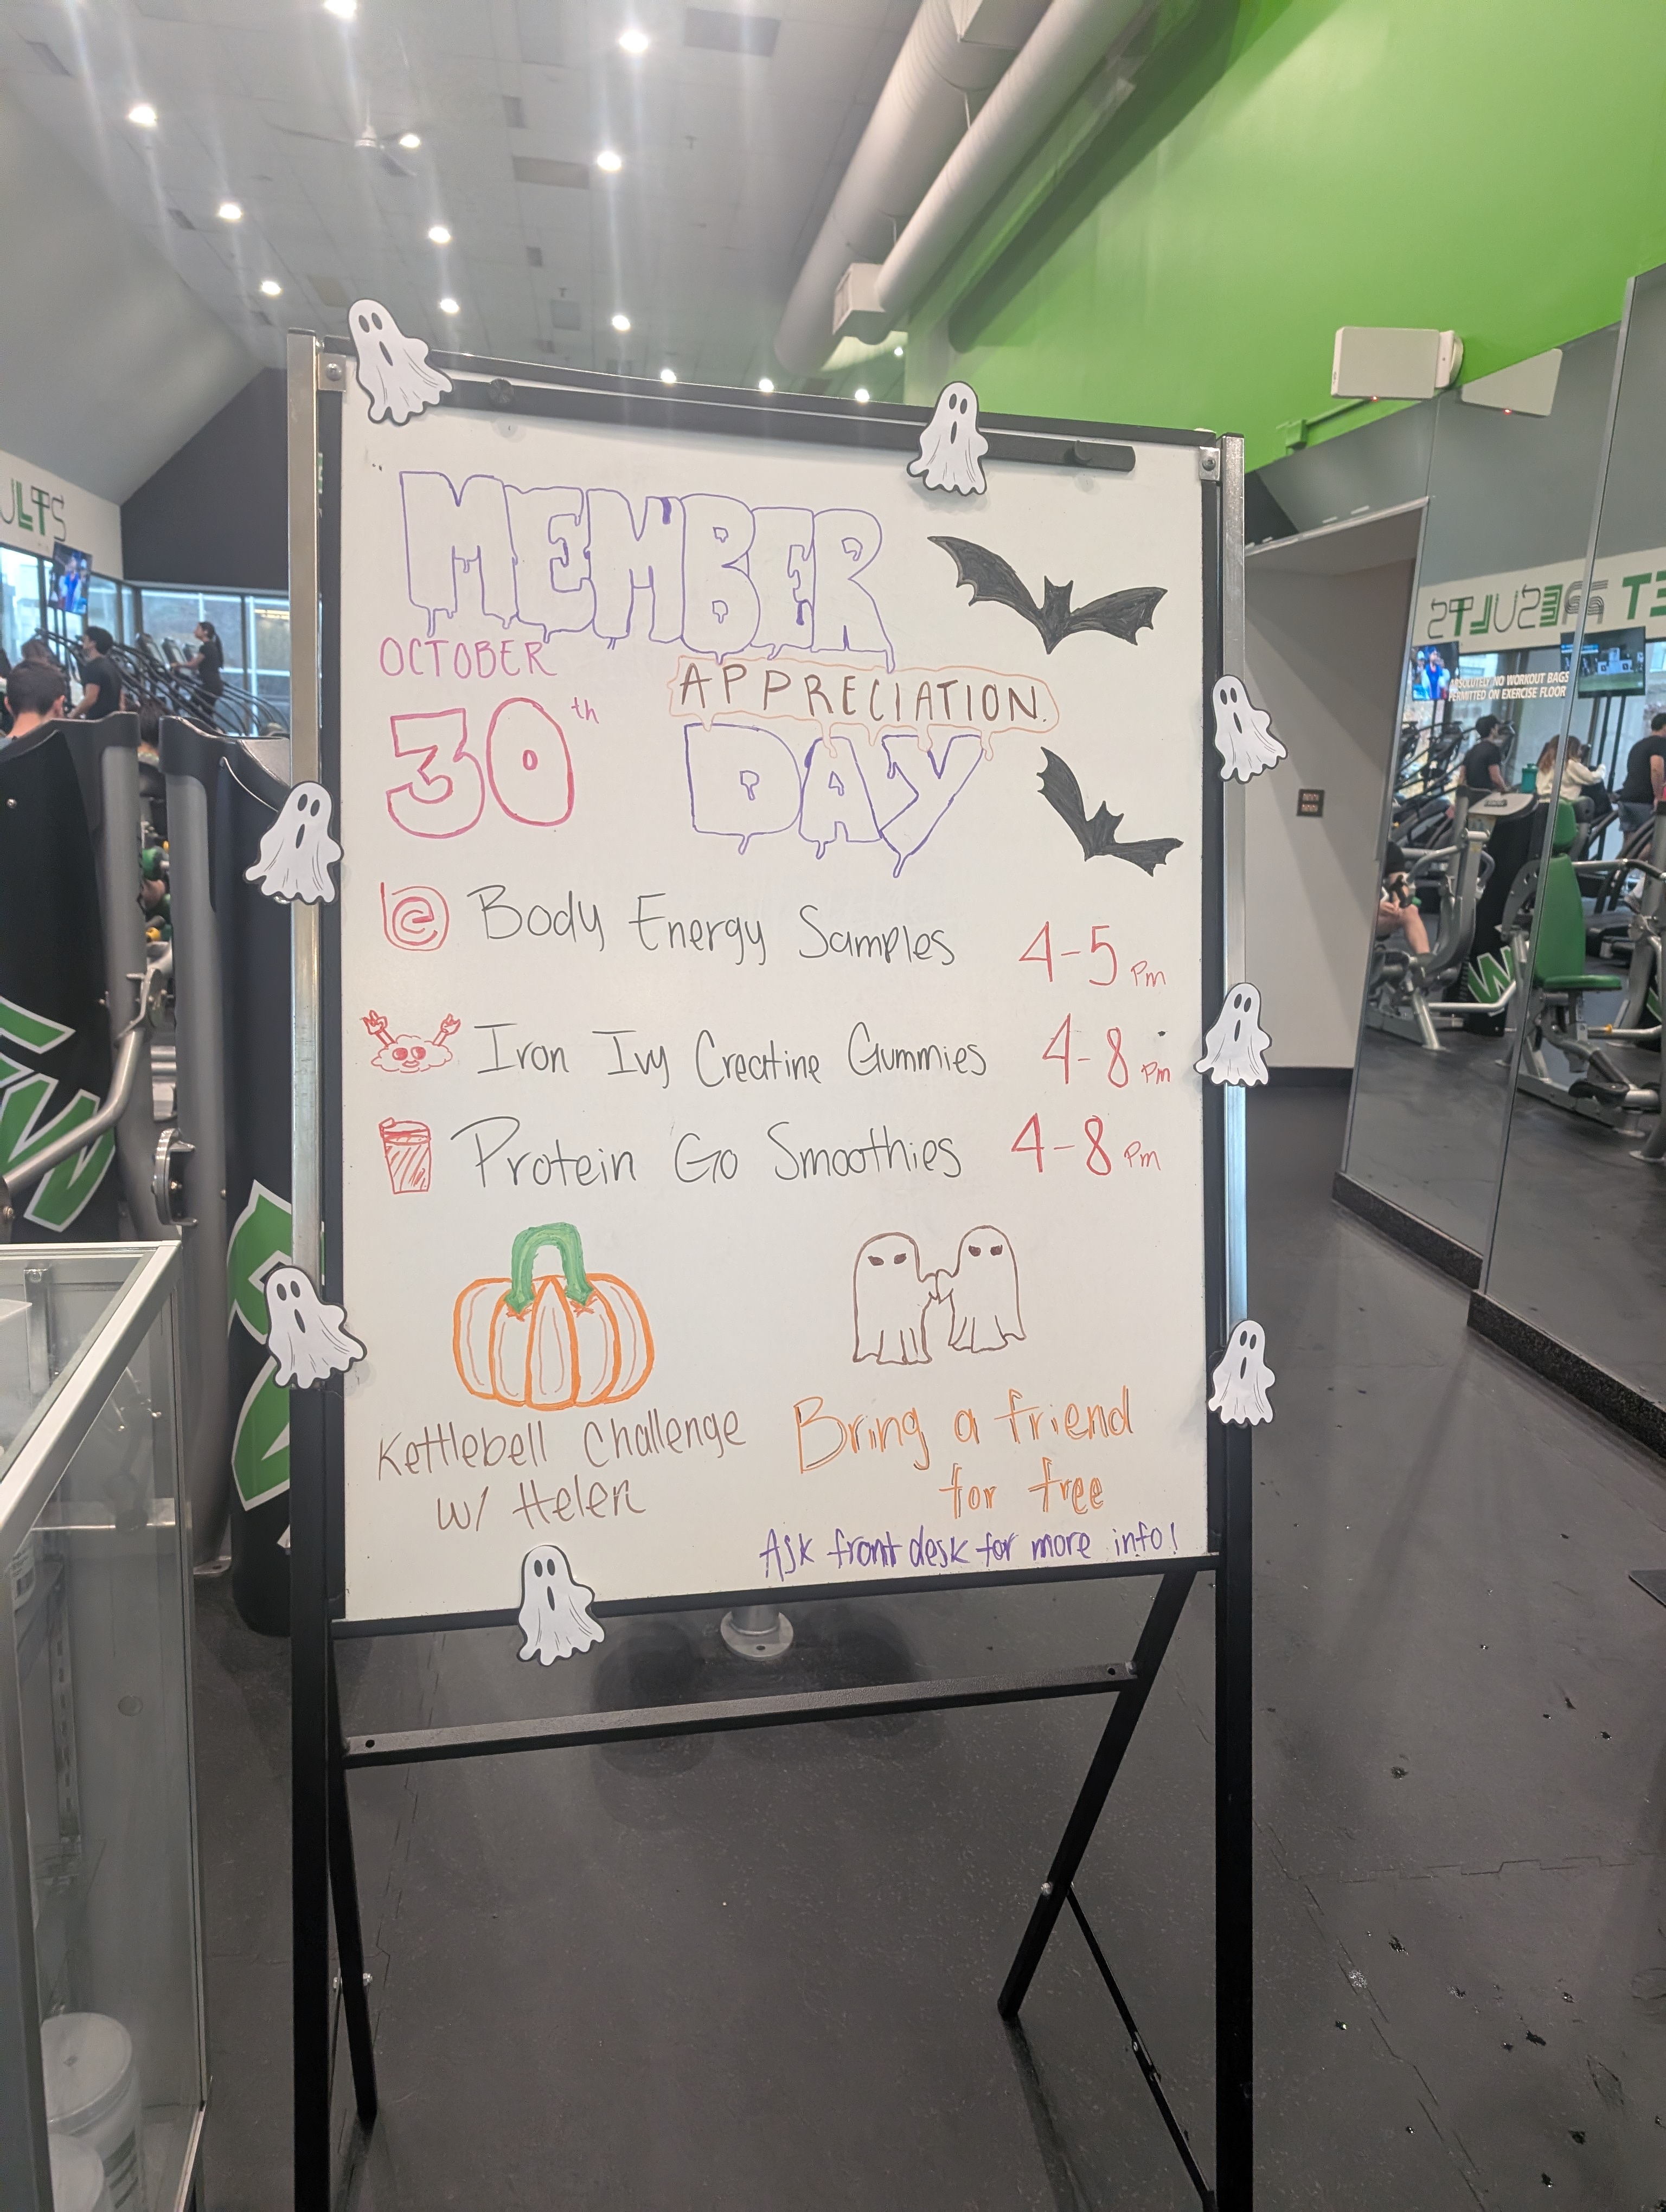 MEMBER
OCTOBER
30th
APPRECIATION
DAY
Body Energy Samples 4-5 Pm
Iron Ivy Creatine Gummies 4-8 Pm
Protein Go Smoothies 4-8 Pm
Kettlebell Challenge
w/ Helen
Bring a friend
for free
Ask front desk for more info!
ULTS
RESULTS
ABSOLUTELY NO WORKOUT BAGS
PERMITTED ON EXERCISE FLOOR